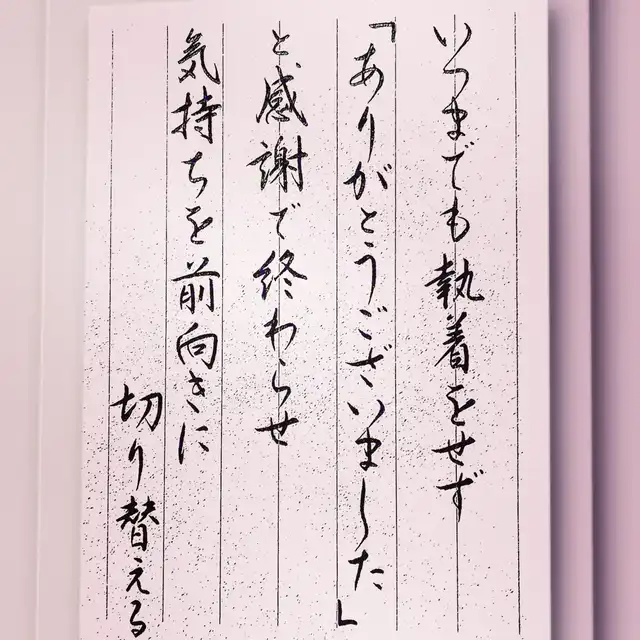 いつまでも執着をせず
「ありがとうございました」
と感謝で終わらせ
気持ちを前向きに
切り替える